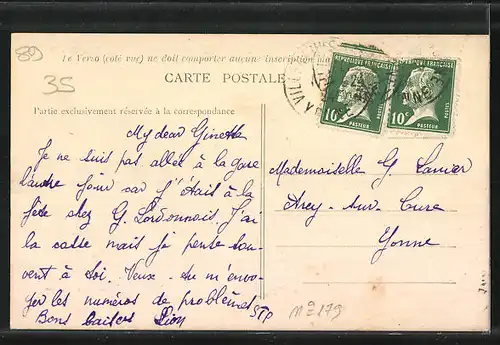 89
35
Le Verso (côté vue) ne doit comporter aucune inscription
CARTE POSTALE
Partie exclusivement réservée à la correspondance
REPUBLIQUE FRANÇAISE
10c
PASTEUR
REPUBLIQUE FRANÇAISE
10c
PASTEUR
My dear Ginette
Je ne suis pas allée à la gare
l'autre jour car j'étais à la
fête chez G. J'ai
la casse mais je pense sou-
vent à toi. Veux-tu m'envo-
yer les numéros de problèmes STP
Bons baisers
Mademoiselle G.
Arcy-sur-Cure
Yonne
n° 179